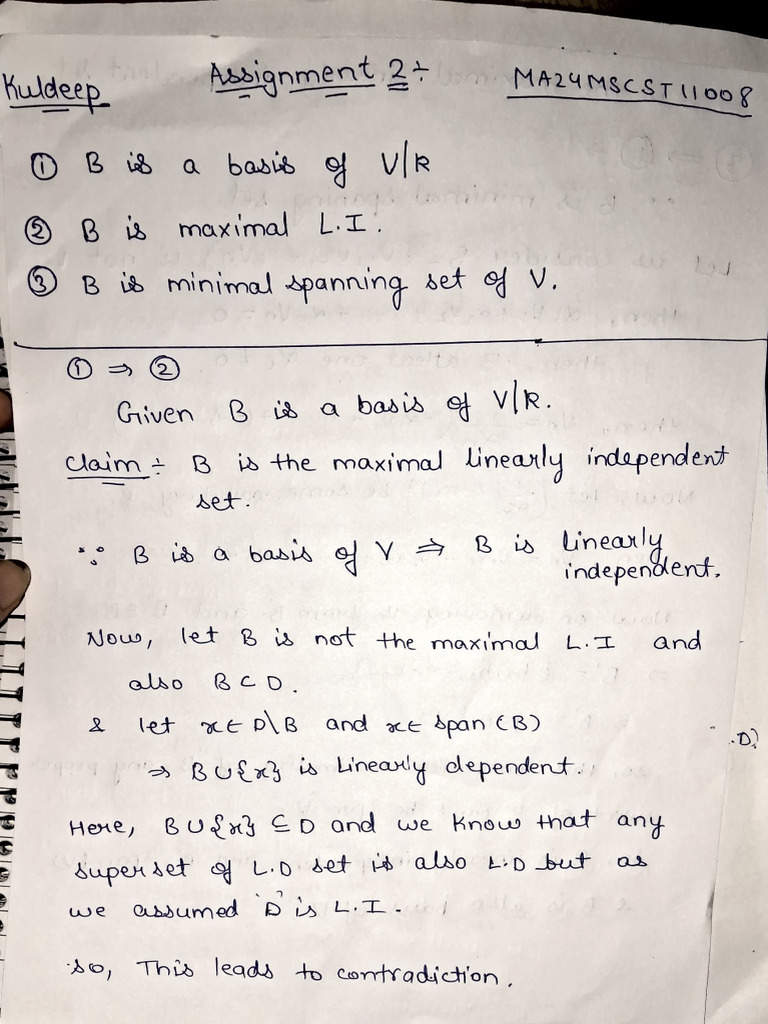 Kuldeep Assignment 2 ÷ MA24MSCST11008
① B is a basis of V/k
② B is maximal L.I.
③ B is minimal spanning set of V.
① ⇒ ②
Given B is a basis of V/k.
Claim ÷ B is the maximal linearly independent
set.
∵ B is a basis of V ⇒ B is linearly
independent.
Now, let B is not the maximal L.I and
also B ⊂ D.
& let x ∈ D\B and x ∈ span (B)
⇒ B∪{x} is Linearly dependent.
Here, B∪{x} ⊆ D and we know that any
superset of L.D set is also L.D but as
we assumed 'D' is L.I.
so, This leads to contradiction.